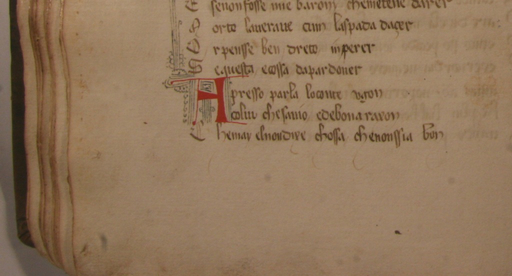 S enonfosse mie baron chemetene darer
F orto laueraue cun laspada dacer
O r pense ben dreto inperer
S e questa cossa dapardoner
A presso parla loconte ugon
C olui chesauio edebona raxon
C hemai elnondire chossa chenonssia bon